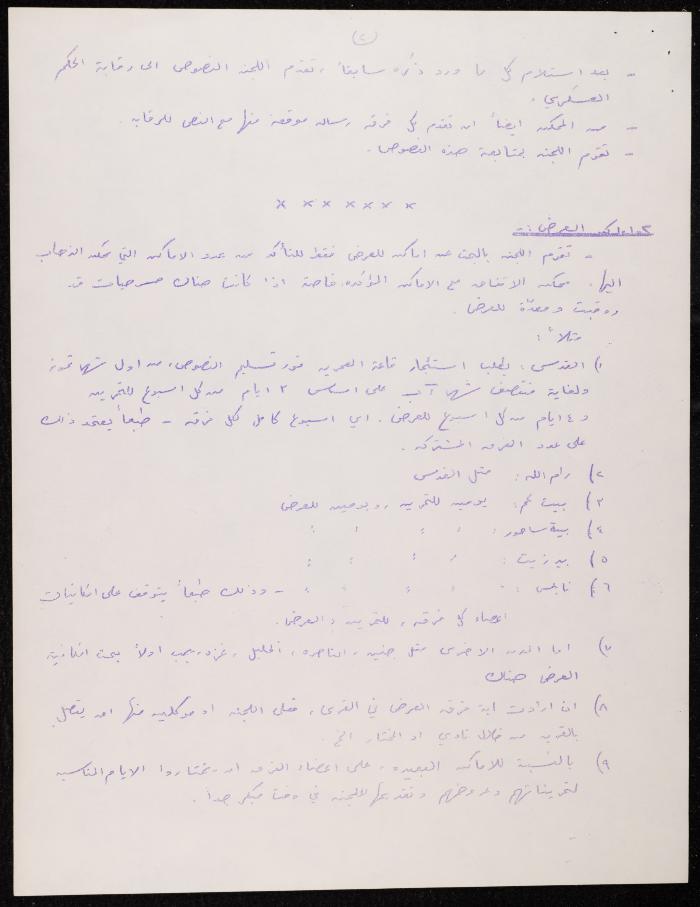 (٢)
- بعد استلام كل ما ورد ذكره سابقاً، تقدم اللجنه النصوص الى رقابة الحكم
العسكري.
- من الممكن ايضاً ان تقدم كل فرقه رساله موقعه منها مع النص للرقابه.
- تقوم اللجنه بمتابعة هذه النصوص.
× × × × × × ×
اماكن العرض :-
- تقوم اللجنه بالبحث عن اماكن للعرض فقط للتأكد من عدد الاماكن التي يمكن الذهاب
اليها. ممكن الاتفاق مع الاماكن المؤكده، خاصة اذا كانت هناك مسرحيات قد
روقبت ومعدّة للعرض.
مثلاً :
١) القدس : يطلب استئجار قاعة فور تسليم النصوص، من اول شهر تموز
ولغاية منتصف شهر آب على اساس ٣ ايام من كل اسبوع للتمرين
و ٤ ايام من كل اسبوع للعرض. اي اسبوع كامل لكل فرقه - طبعاً يعتمد ذلك
على عدد الفرق المشتركه.
٢) رام الله : مثل القدس
٣) بيت لحم : يومين للتمرين ويومين للعرض
٤) بيت ساحور : : : : :
٥) بير زيت : : : :
٦) نابلس : : : : : - وذلك طبعاً يتوقف على امكانيات
اعضاء كل فرقه، للتمرين والعرض.
٧) اما المدن الاخرى مثل جنين، الناصره، الخليل، غزه، يجب اولاً بحث امكانية
العرض هناك
٨) ان ارادت اية فرقه العرض في القرى، فعلى اللجنه او موكلين منها ان يتصل
بالقريه من خلال نادي او المختار الخ.
٩) بالنسبة للاماكن البعيده، على اعضاء الفرق ان يختاروا الايام المناسبه
لتمريناتهم وعروضهم وتقديمها للجنه في وقت مبكر جداً.